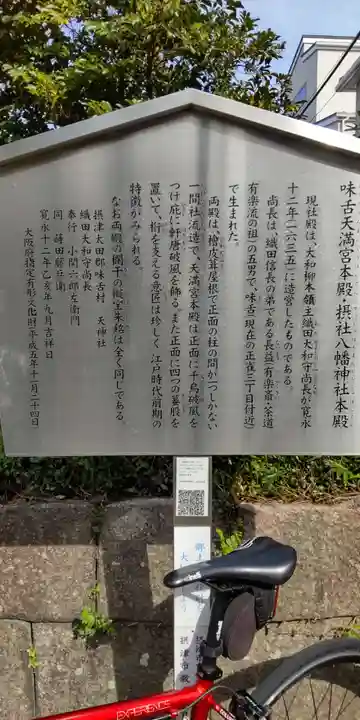 味舌天満宮本殿・摂社八幡神社本殿
現社殿は、大和柳本領主織田大和守尚長が寛永
十二年(一六三五)に造営したものである。
尚長は、織田信長の弟である長益(有楽斎・茶道
有楽流の祖)の五男で、味舌(現在の正雀三丁目付近)
で生まれた。
両殿は、檜皮葺屋根で正面の柱の間が一つしかない
一間社流造で、天満宮本殿は正面に千鳥破風を
つけ庇に軒唐破風を飾る。また正面に四つの蟇股を
置いて、桁を支える意匠は珍しく江戸時代前期の
特徴がみられる。
なお両殿の欄干の擬宝朱銘は全く同じである。
摂津太田郡味舌村 天神社
織田大和守尚長
奉行 小間六郎左衛門
同 蒔田藤兵衛
寛永十二年乙亥年九月吉祥日
大阪府指定有形文化財 平成五年十一月二十四日
摂津市教
EXPERIENCE